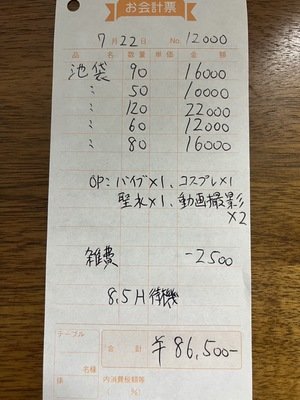 お会計票
7月22日 No. 12000
品名 数量 単価 金額
池袋 90 16000
〃 50 10000
〃 120 22000
〃 60 12000
〃 80 16000
OP:バイブ×1、コスプレ×1
聖水×1、動画撮影
×2
雑費 -2500
8.5H待機
テーブル
合計 ¥86,500-
名様
係 内消費税額等
( %)